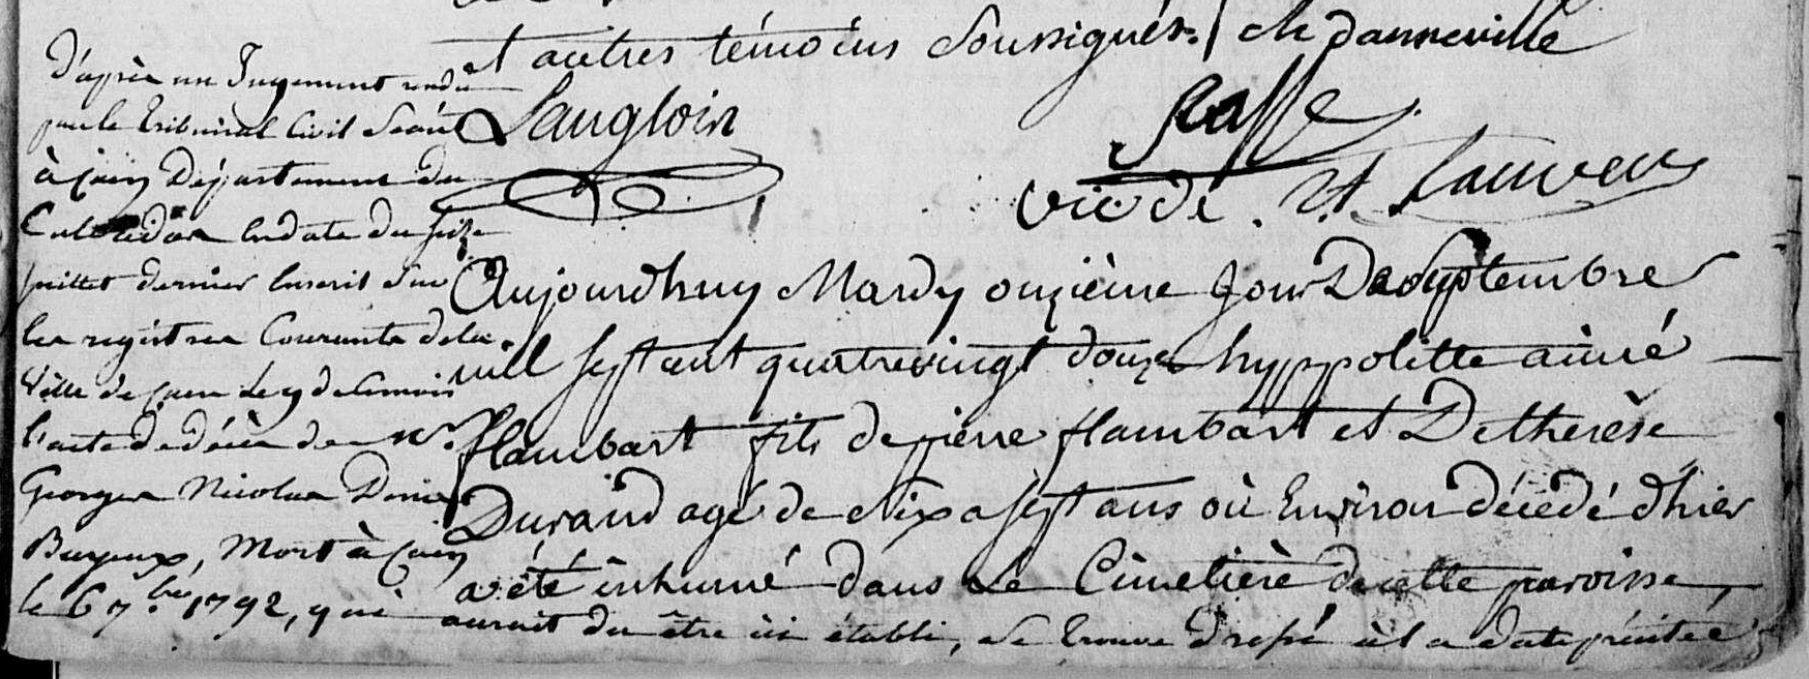 et autres témoins Soussignés./. de danneville
Langlois
Raffe
vic de St Sauveur
Aujourdhuy Mardy onzième jour De Septembre
mil sept cent quatrevingt douze hyppolitte aimé
flambart fils de pierre flambart et De therèse
Durand agé de dix a sept ans où Environ décédé d'hier
a été inhumé dans le Cimetière de cette paroisse,
D'après un Jugement rendu
par le Tribunal Civil Séant
à Caen Département du
Calvados En date du seize
juillet dernier Inscrit sur
les registres Courants de la
Ville de Caen Le 9 de Ce mois
l'acte de décès de Mr.
Georges Nicolas Denis
Bayeux, Mort à Caen
le 6 7.bre 1792, qui aurait du être ici établi, se trouve dressé à la date précitée